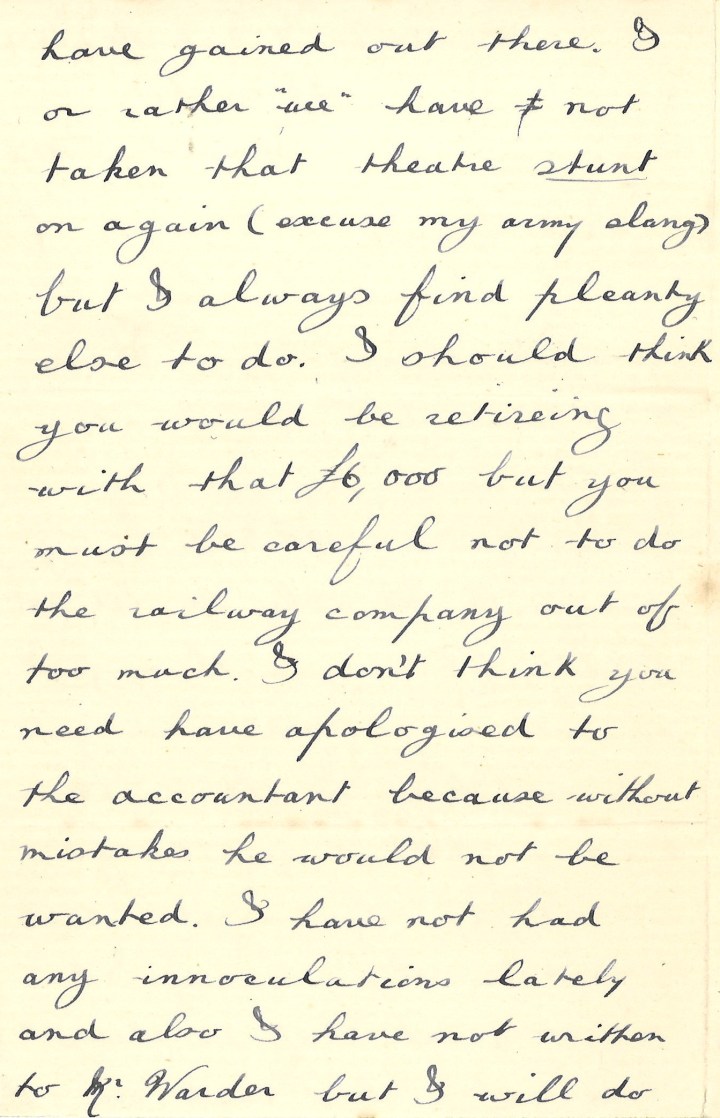 have gained out there. I
or rather "we" have not
taken that theatre stunt
on again (excuse my army slang)
but I always find pleanty
else to do. I should think
you would be retireing
with that £6,000 but you
must be careful not to do
the railway company out of
too much. I don't think you
need have apologised to
the accountant because without
mistakes he would not be
wanted. I have not had
any innoculations lately
and also I have not written
to Mr. Warder but I will do